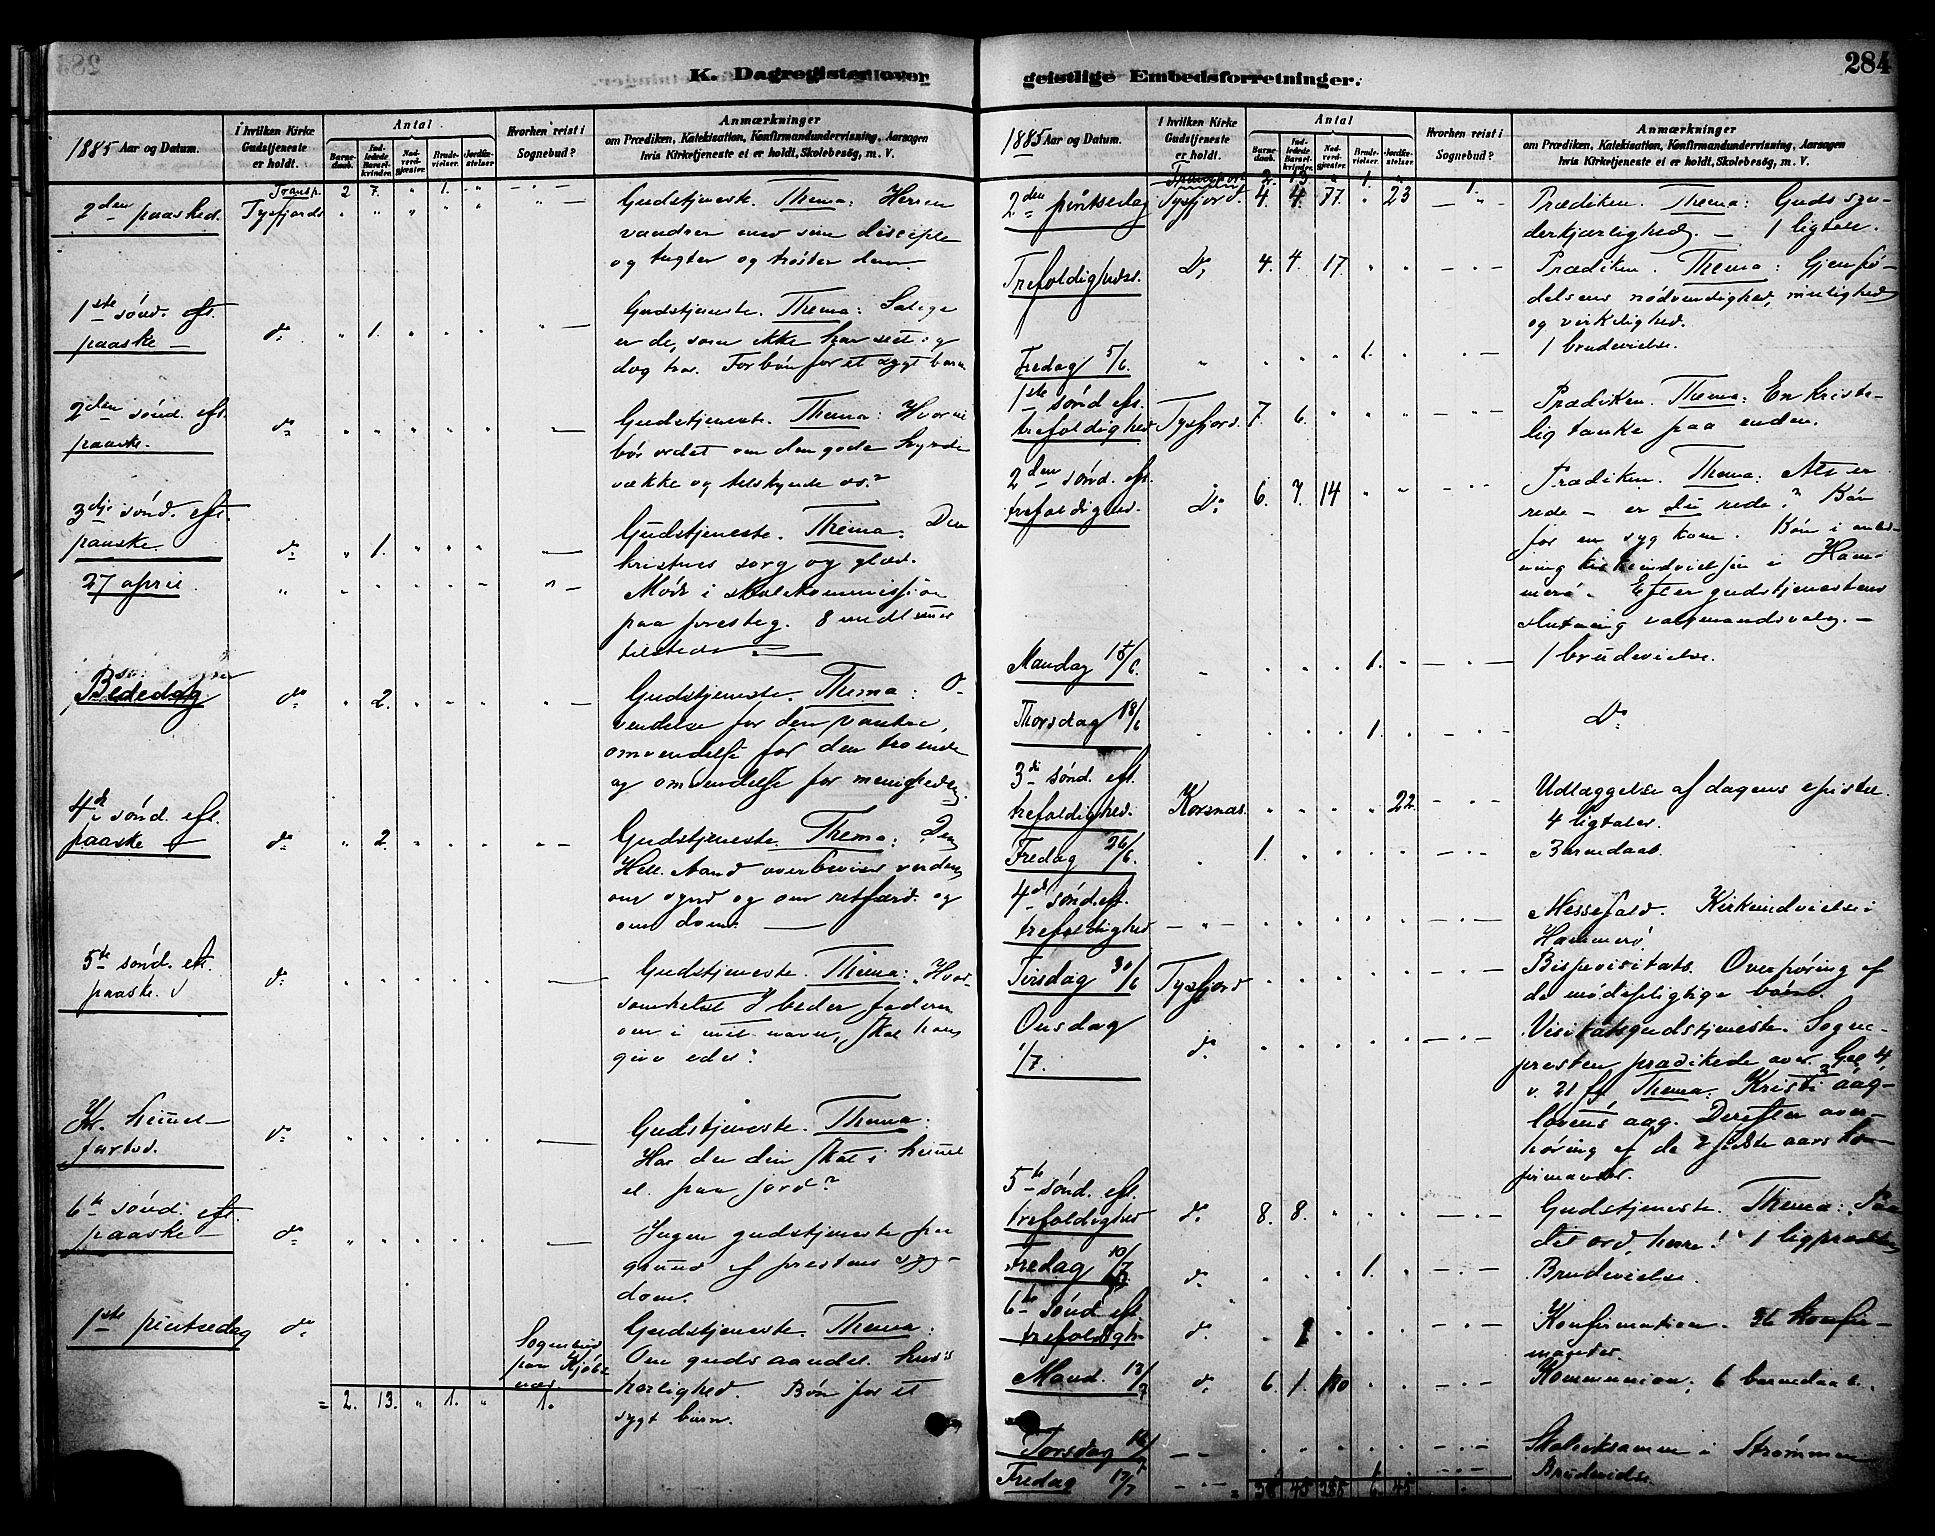 K. Dagregister over
1885 Aar og Datum.
I hvilken Kirke Gudstjeneste er holdt.
Antal
Barnedaab.
Indledede Barselkvinder.
Nadverdgjæster.
Brudevielser.
Jordfæstelser.
Hvorhen reist i Sognebud?
Anmærkninger
om Prædiken, Katekisation, Konfirmandundervisning, Aarsagen
hvis Kirketjeneste ei er holdt, Skolebesøg, m. V.
Transp. 2 7. " 1. "
2den paasked. Tysfjords " " " " " " —
Gudstjeneste. Thema: Herren
vandrer med sine disciple
og tugter og trøster dem.
1ste sønd. eft.
paaske — do " 1. " " " " —
Gudstjeneste. Thema: Salige
er de, som ikke har seet og
dog tror. Forbøn for et sygt barn
2den sønd. eft.
paaske. do " " " " " —
Gudstjeneste. Thema: Hvor
bør ordet om den gode hyrde
vække og tilskynde os?
3die sønd. eft.
paaske. do " 1. " " " —
Gudstjeneste. Thema: Den
kristnes sorg og glæde.
27 april " " " " " " " —
Møde i skolekommission
paa foresteg. 8 medlemmer
tilstede. —
Bededag do " 2. " " " " —
Gudstjeneste. Thema: O-
vendelse for den vantro,
omvendelse for den troende
og omvendelse for menigheden.
4de sønd. eft.
paaske — do " 2. " " " " —
Gudstjeneste. Thema: Den
Hell. Aand overbeviser verden
om synd og om retfærd. og
om dom. —
5te sønd. eft.
paaske. do " " " " " —
Gudstjeneste. Thema: Hvad-
somhelst I beder faderen
om i mit navn, skal han
give eder?
Kr. himmel-
fartsd. do " " " " " —
Gudstjeneste. Thema:
Har du din skat i himmel
el. paa jord?
6te sønd. eft.
paaske — do " " " " " —
Ingen gudstjeneste paa
grund af prestens syg-
dom.
1ste pintsedag do
Sognebud
paa Kjøb-
næs.
Gudstjeneste. Thema:
Om guds aandet. hus's
herlighed. Bøn for et
sygt barn.
= 2. 13. " 1. " 1.
geistlige Embedsforretninger.
284
1885 Aar og Datum.
I hvilken Kirke Gudstjeneste er holdt.
Antal
Barnedaab.
Indledede Barselkvinder.
Nadverdgjæster.
Brudevielser.
Jordfæstelser.
Hvorhen reist i Sognebud?
Anmærkninger
om Prædiken, Katekisation, Konfirmandundervisning, Aarsagen
hvis Kirketjeneste ei er holdt, Skolebesøg, m. V.
Transport 2. 13 " 1. " 1.
2den pintsedag Tysfjord. 4. 4. 77. " 23 — " —
Prædiken. Thema: Guds syn-
derkjærlighed. — 1 ligtale.
Trefoldighedss. Do 4. 4. 17 " " — " —
Prædiken. Thema: Gjenfø-
delsens nødvendighed, mulighed
og virkelighed.
Fredag 5/6. " " " " 1. " — " —
1 brudevielse.
1ste sønd eft.
trefoldighed Tysfjord. 7. 6. " " " — " —
Prædiken. Thema: En kriste-
lig tanke paa enden.
2den sønd. eft.
trefoldighed. Do 6. 7. 14 " " — " —
Prædiken. Thema: Alt er
rede — er du rede? Bøn
for en syg kone. Bøn i anled-
ning kirkeindvielsen i Ham-
merø. Efter gudstjenestens
slutning valgmandsvalg. —
Mandag 15/6. " " " " 1. " — " —
1 brudevielse.
Thorsdag 18/6 " " " " 1. " — " —
Do
3die sønd. eft.
trefoldighed. Korsnæs. " " " " 22. — " —
Udlæggelse af dagens epistel.
4 ligtaler.
Fredag 26/6. " 1. " " " " — " —
Barnedaab.
4de sønd. eft.
trefoldighed — " — " " " " " — " —
Messefald. Kirkeindvielse i
Hammerø.
Tirsdag 30/6 Tysfjord " " " " " — " —
Bispevisitats. Overhøring af
de mødepligtige børn.
Onsdag
1/7. do " " " " " — " —
Visitatsgudstjeneste. Sogne-
presten prædikede over Gal. 4
v. 21 ff Thema: Kristi aag-
lovens aag. Derefter over-
høring af de 2 sidste aars kon-
firmander.
5te sønd. eft.
trefoldighed do 8. 8. " " " — " —
Gudstjeneste. Thema: Paa
dit ord, herre! 1 ligprædiken
Fredag 10/7 do " " " 1. " — " —
Brudevielse.
6te sønd eft
trefoldigh. do " 1 " " " — " —
Konfirmation. 36 konfir-
mander.
Mand. 13/7 do 6. 1. 180 " " — " —
Kommunion; 6 barnedaab.
Torsdag 16/7 — " — " " " " " — " —
Skoleeksamen i Strømmen
Fredag 17/7 — " — 1.
Brudevielse.
= 38 45 285 6. 45 1.